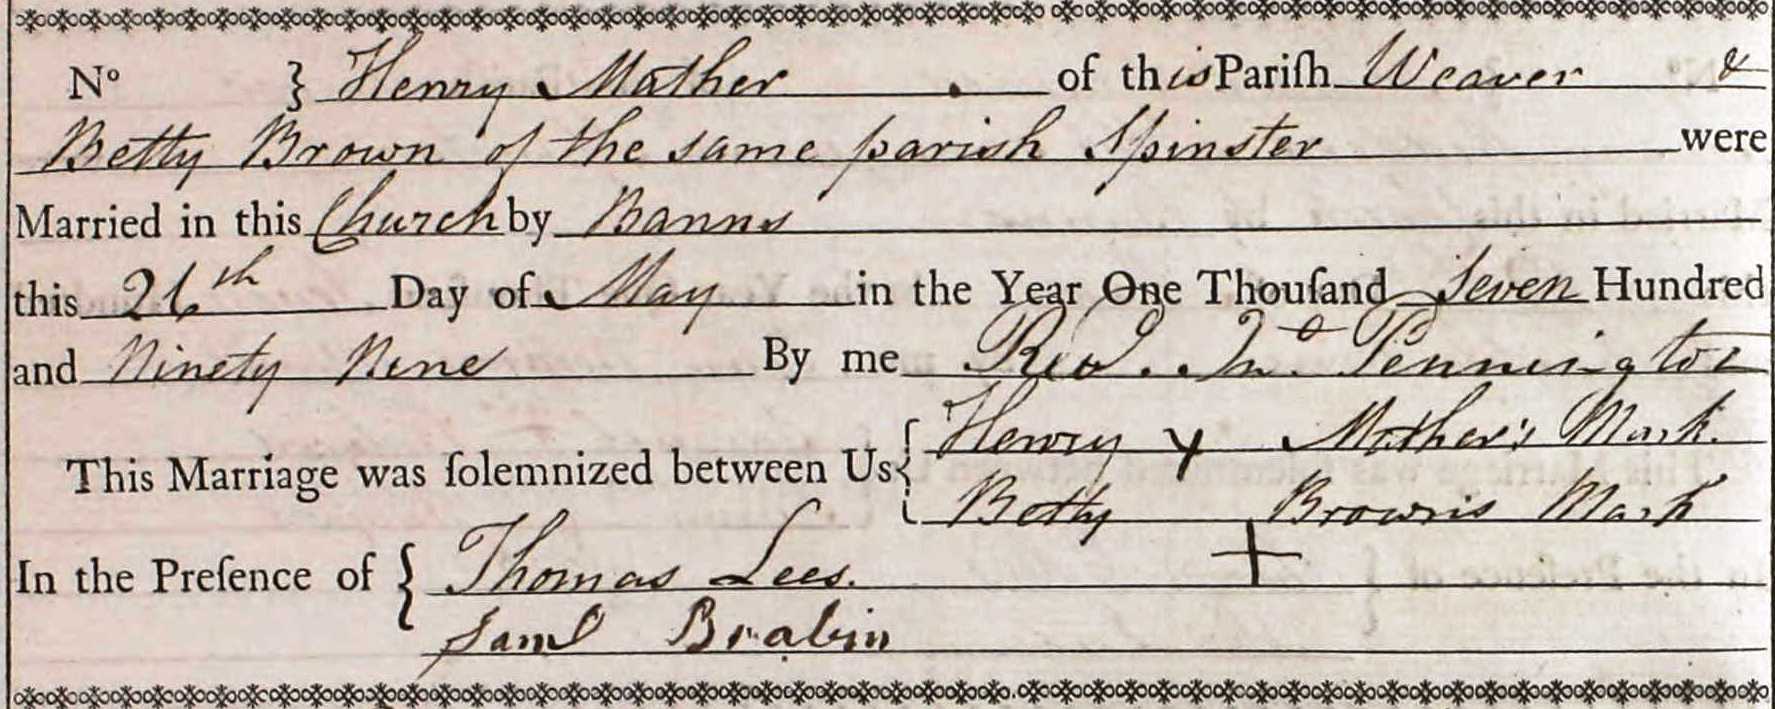 No } Henry Mather . of this Pariſh Weaver &
Betty Brown of the same parish Spinster were
Married in this Church by Banns
this 26th Day of May in the Year One Thouſand Seven Hundred
and Ninety Nine By me Revd. Jno. Pennington
This Marriage was ſolemnized between Us { Henry × Mather's Mark.
Betty + Brown's Mark
In the Preſence of { Thomas Lees.
Saml Brabin